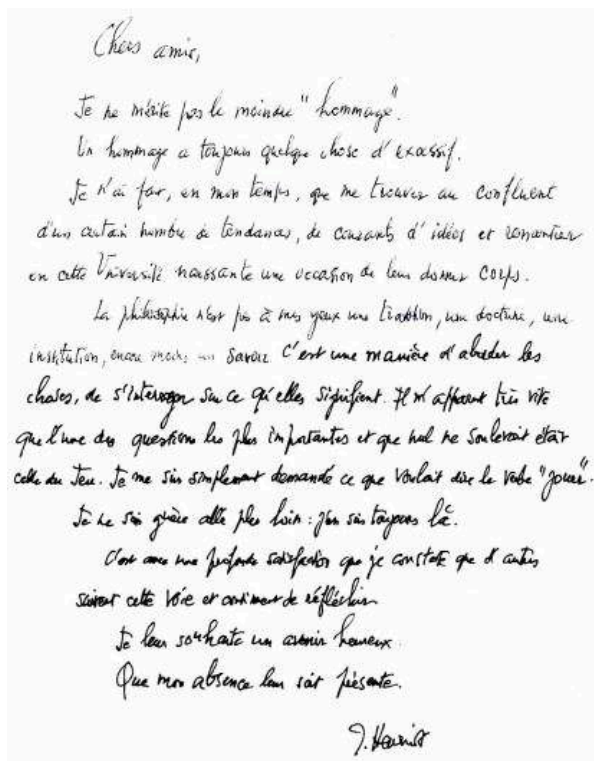 Chers amis,
Je ne mérite pas le moindre "hommage".
Un hommage a toujours quelque chose d'excessif.
Je n'ai fait, en mon temps, que me trouver au confluent
d'un certain nombre de tendances, de courants d'idées et rencontrer
en cette Université naissante une occasion de leur donner corps.
La philosophie n'est pas à mes yeux une tradition, une doctrine, une
institution, encore moins un savoir. C'est une manière d'aborder les
choses, de s'interroger sur ce qu'elles signifient. Il m'apparut très vite
que l'une des questions les plus importantes et que nul ne soulevait était
celle du Jeu. Je me suis simplement demandé ce que voulait dire le verbe "jouer".
Je ne suis guère allé plus loin : j'en suis toujours là.
C'est avec une profonde satisfaction que je constate que d'autres
suivent cette voie et continuent de réfléchir.
Je leur souhaite un avenir heureux.
Que mon absence leur soit présente.
J. Henriot